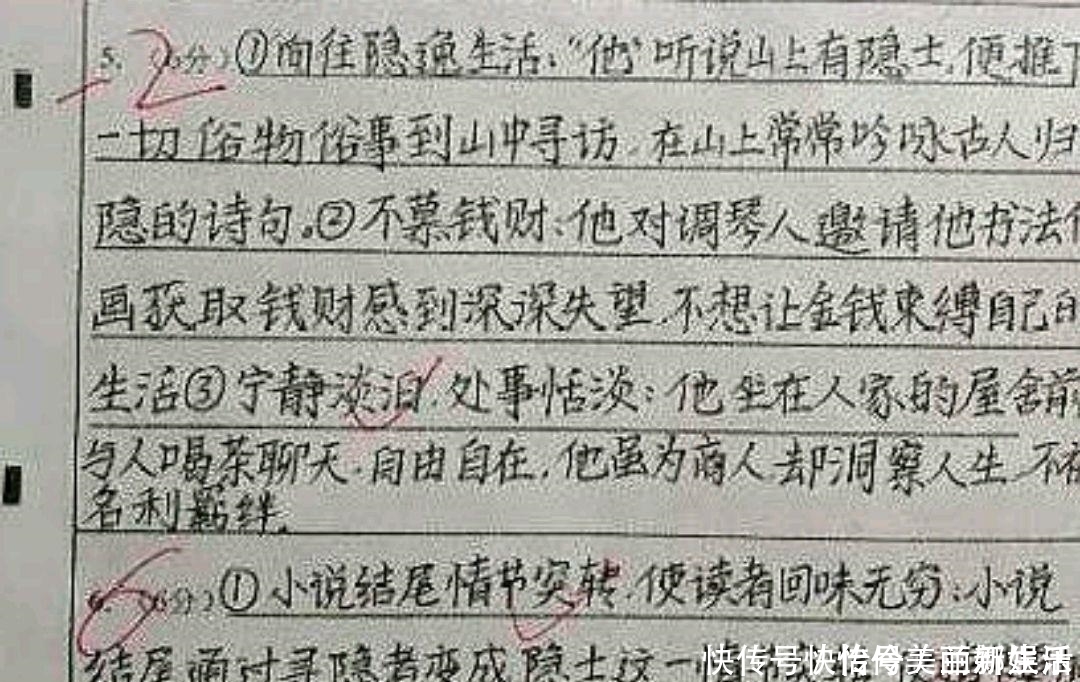 5. (6分)①向往隐逸生活:“他”听说山上有隐士,便推
一切俗物俗事到山中寻访,在山上常常吟咏古人归
隐的诗句。②不慕钱财:他对调琴人邀请他书法
画获取钱财感到深深失望,不想让金钱束缚自己的
生活③宁静淡泊,处事恬淡:他坐在人家的屋舍前
与人喝茶聊天,自由自在,他虽为商人却洞察人生,不
名利羁绊。
-2
(6分)①小说结尾情节突转,使读者回味无穷:小说
6
结尾通过寻隐者变成隐士这一
快传号